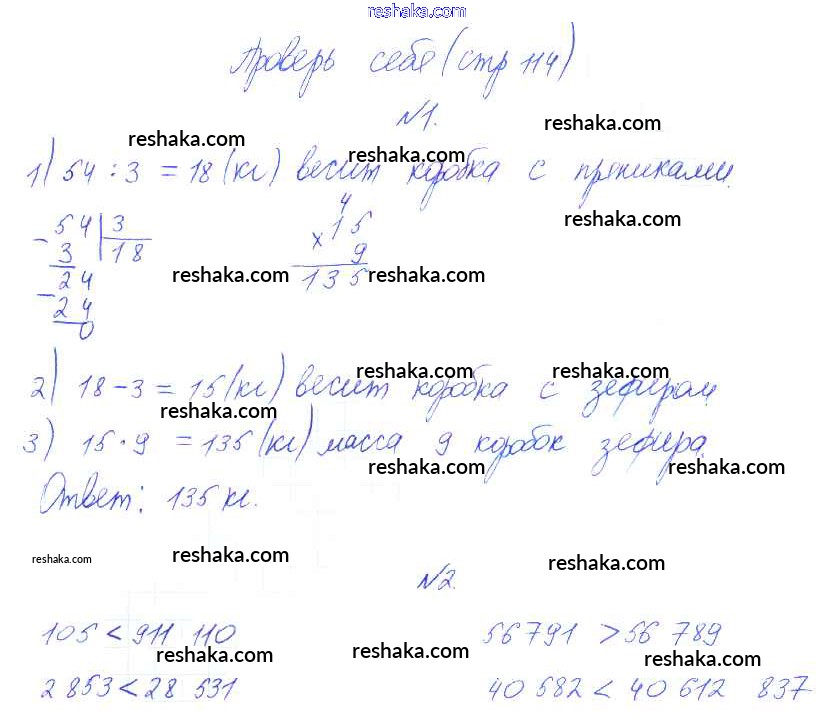 reshaka.com
Проверь себя (стр 114)
№1.
reshaka.com reshaka.com
1) 54 : 3 = 18 (кг) весит коробка с пряниками.
reshaka.com
reshaka.com
54 3
3 18
24
24
0
4
× 15
9
135
reshaka.com reshaka.com
2) 18 - 3 = 15 (кг) весит коробка с зефиром
reshaka.com reshaka.com
reshaka.com
3) 15 · 9 = 135 (кг) масса 9 коробок зефира.
reshaka.com reshaka.com
Ответ: 135 кг.
reshaka.com reshaka.com reshaka.com
№2.
105 < 911 110 56 791 > 56 789
reshaka.com reshaka.com reshaka.com
2 853 < 28 531 40 582 < 40 612 837